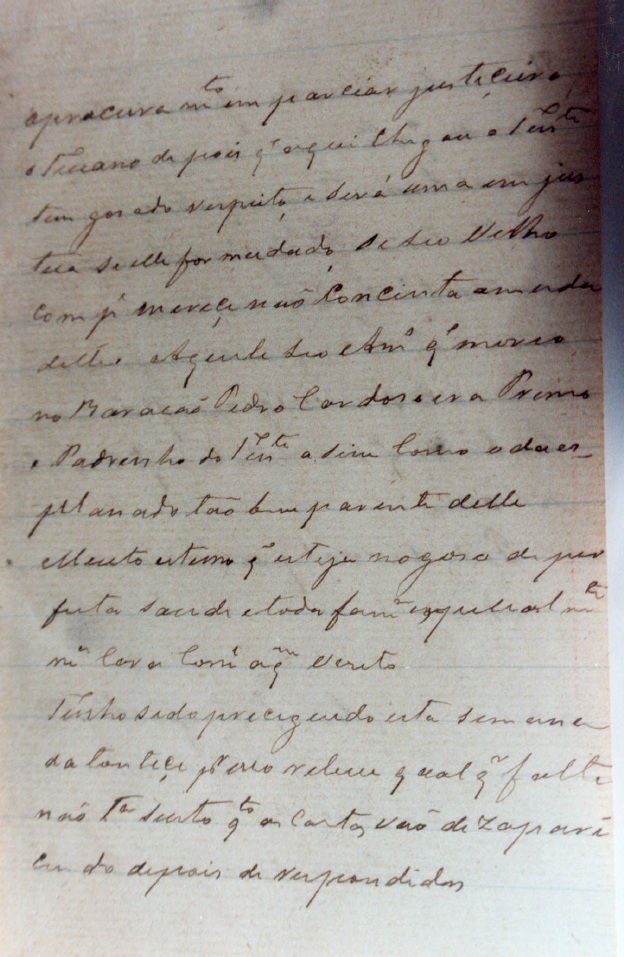 aprocura mto imparciar justiçeiro
o Tirano depois qe aqui chegou o Tente
tem gosado respeito, e será uma injus
tiça se elle for mudado, se seo Velho
comp.e mereçe não Concinta a muda
delle. Aquele seo Amo qe moreo
no Maracaō Pedro Cardoso era Primo
e Padrinho do Tente asim Como o da es-
planado tão bem parente delle
Muito estimo qe esteja no goso de per
feita saude e toda fama
ma Cara Come a qm
Tenho sido precizendo esta semana
da Conteça, porisso releve qual qr falta
não Tea susto qto as Cartas, vaō dezapare
cendo depois de respondidas